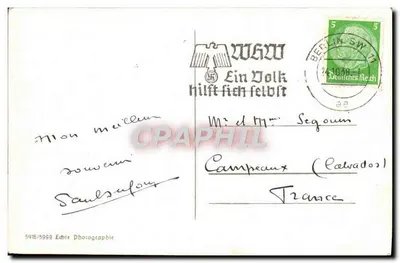 WHW
Ein Volk
hilft sich selbst
BERLIN SW 11
5 5
Deutsches Reich
Mon meilleur
souvenir
CPAPHIL
Mr et Mme Segouin
Campeaux (Calvados)
France
5918/5993 Echte Photographie